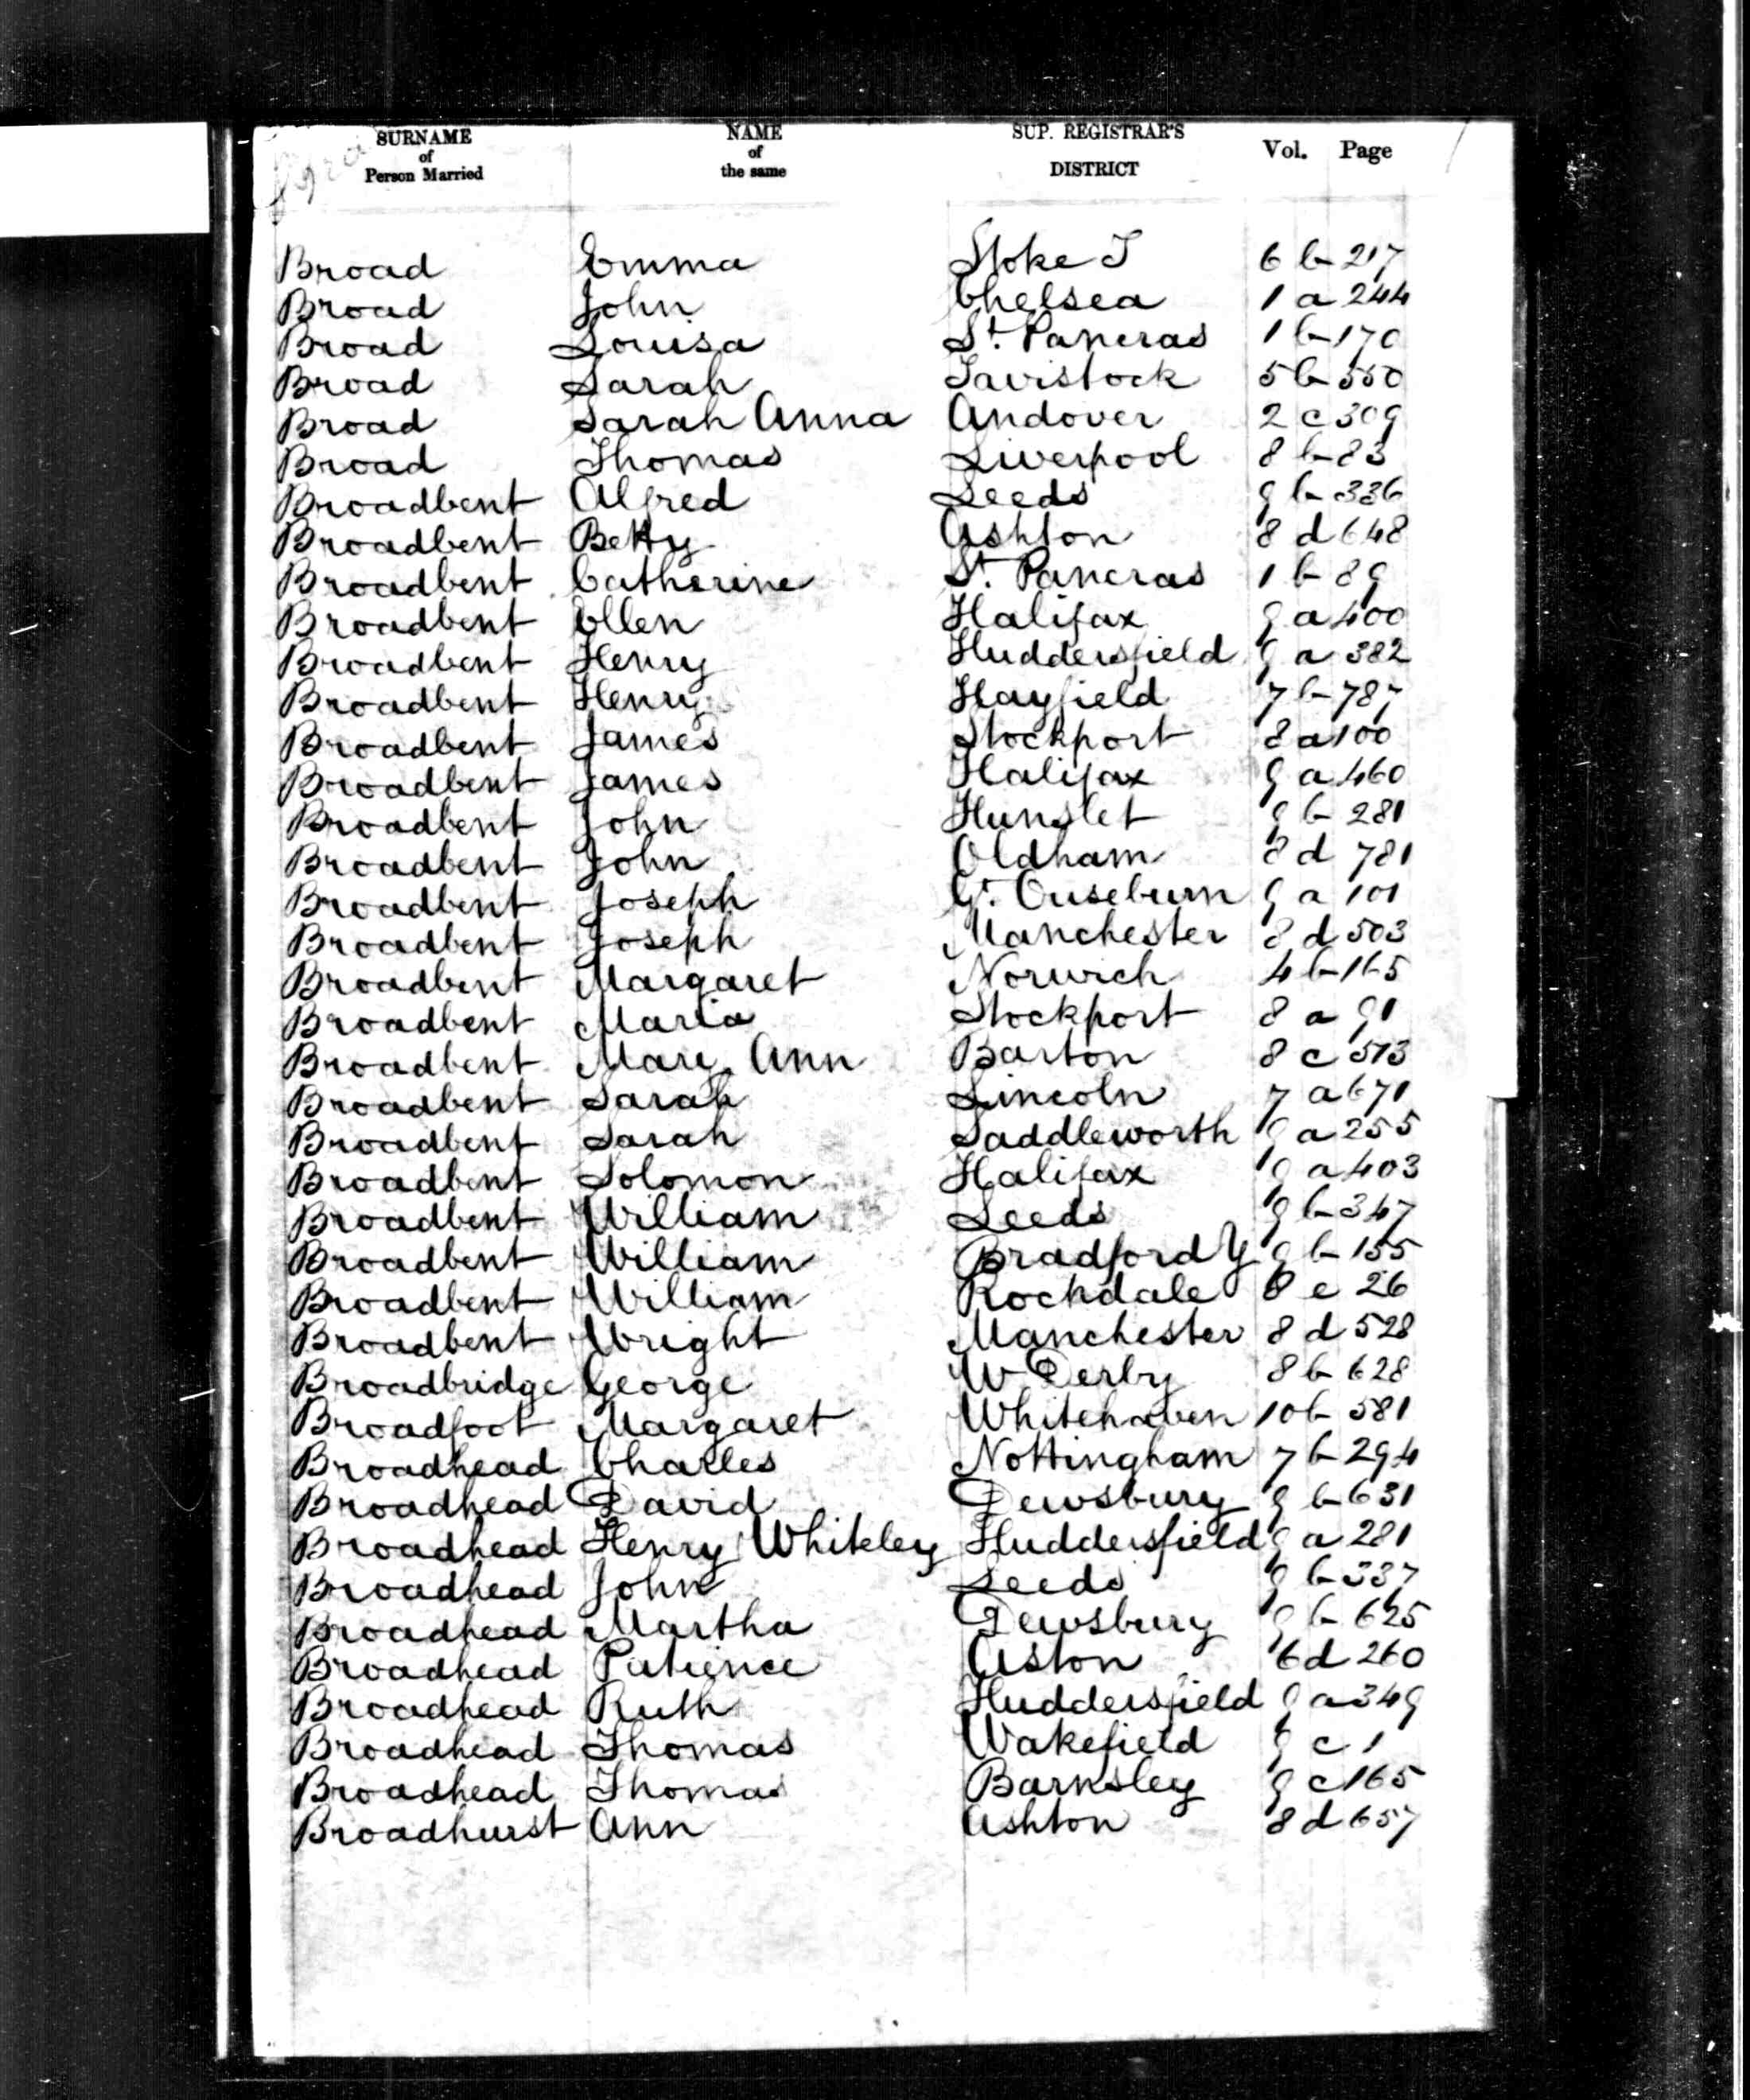 SURNAME of Person Married NAME of the same SUP. REGISTRAR'S DISTRICT Vol. Page
Broad Emma Stoke T 6 b 217
Broad John Chelsea 1 a 244
Broad Louisa St. Pancras 1 b 170
Broad Sarah Tavistock 5 b 550
Broad Sarah Anna Andover 2 c 309
Broad Thomas Liverpool 8 b 83
Broadbent Alfred Leeds 9 b 336
Broadbent Betty Ashton 8 d 648
Broadbent Catherine St. Pancras 1 b 89
Broadbent Ellen Halifax 9 a 400
Broadbent Henry Huddersfield 9 a 382
Broadbent Henry Hayfield 7 b 787
Broadbent James Stockport 8 a 100
Broadbent James Halifax 9 a 460
Broadbent John Hunslet 9 b 281
Broadbent John Oldham 8 d 781
Broadbent Joseph Gt. Ouseburn 9 a 101
Broadbent Joseph Manchester 8 d 503
Broadbent Margaret Norwich 4 b 165
Broadbent Maria Stockport 8 a 91
Broadbent Mary Ann Barton 8 c 513
Broadbent Sarah Lincoln 7 a 671
Broadbent Sarah Saddleworth 9 a 255
Broadbent Solomon Halifax 9 a 403
Broadbent William Leeds 9 b 347
Broadbent William Bradford Y 9 b 155
Broadbent William Rochdale 8 e 26
Broadbent Wright Manchester 8 d 528
Broadbridge George W Derby 8 b 628
Broadfoot Margaret Whitehaven 10 b 581
Broadhead Charles Nottingham 7 b 294
Broadhead David Dewsbury 9 b 631
Broadhead Henry Whiteley Huddersfield 9 a 281
Broadhead John Leeds 9 b 337
Broadhead Martha Dewsbury 9 b 625
Broadhead Patience Aston 6 d 260
Broadhead Ruth Huddersfield 9 a 349
Broadhead Thomas Wakefield 9 c 1
Broadhead Thomas Barnsley 9 c 165
Broadhurst Ann Ashton 8 d 657